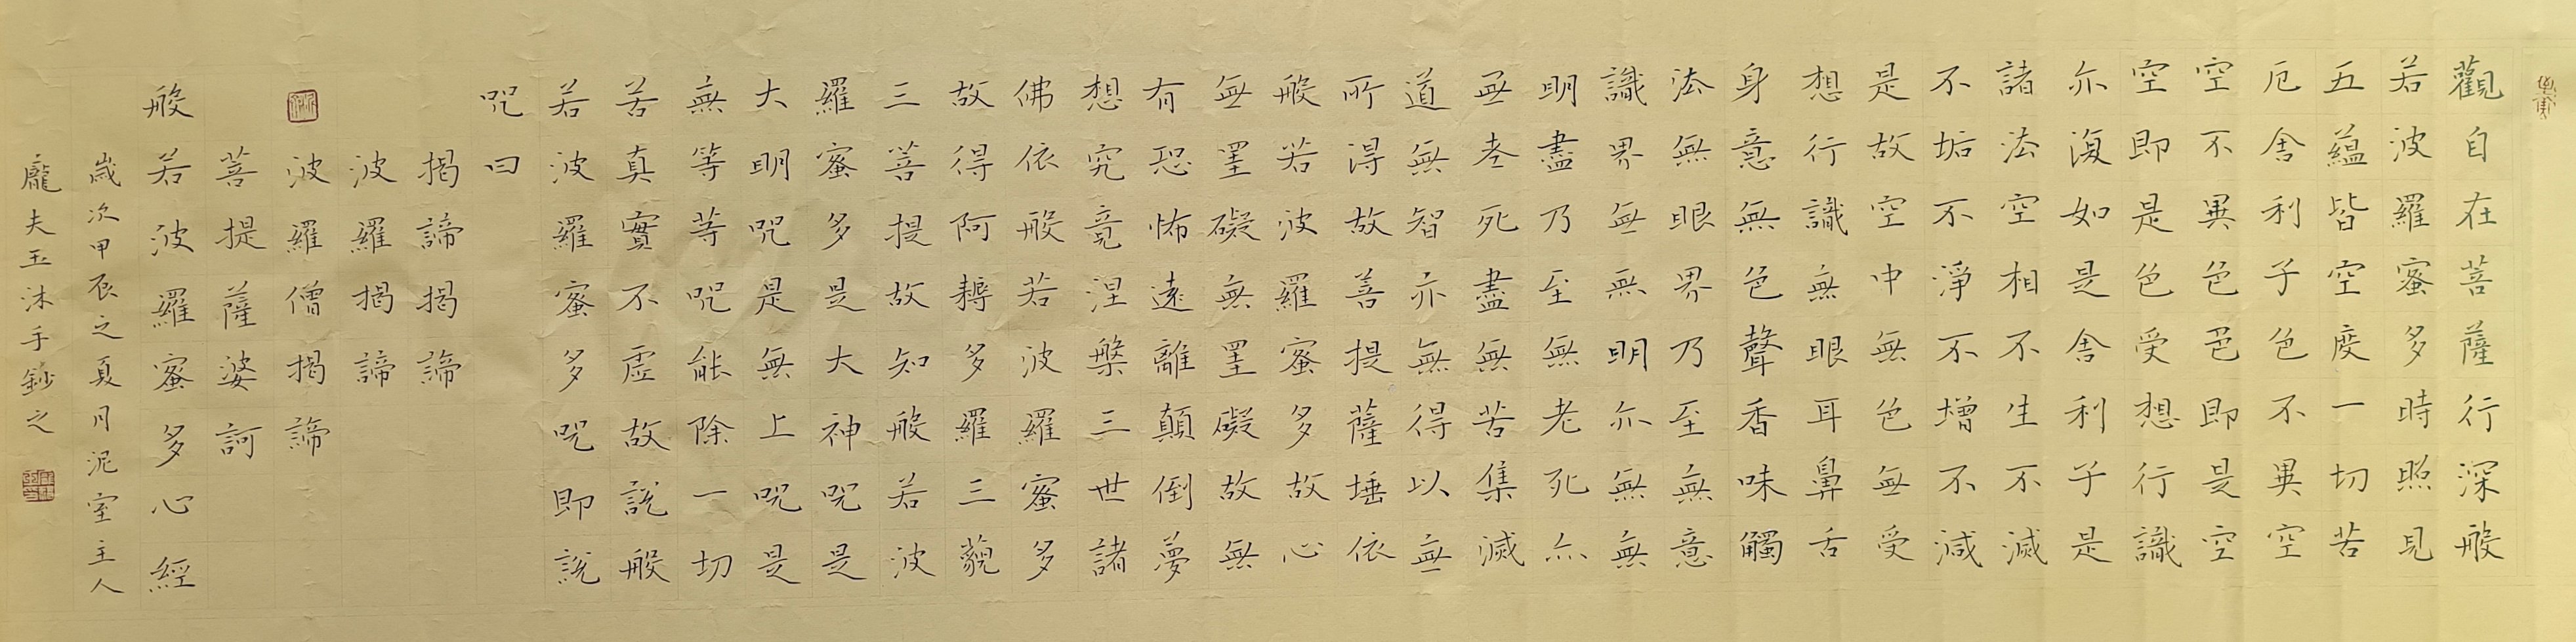 觀自在菩薩行深般
若波羅蜜多時照見
五蘊皆空度一切苦
厄舍利子色不異空
空不異色色即是空
空即是色受想行識
亦復如是舍利子是
諸法空相不生不滅
不垢不淨不增不減
是故空中無色無受
想行識無眼耳鼻舌
身意無色聲香味觸
法無眼界乃至無意
識界無無明亦無無
明盡乃至無老死亦
無老死盡無苦集滅
道無智亦無得以無
所得故菩提薩埵依
般若波羅蜜多故心
無罣礙無罣礙故無
有恐怖遠離顛倒夢
想究竟涅槃三世諸
佛依般若波羅蜜多
故得阿耨多羅三藐
三菩提故知般若波
羅蜜多是大神咒是
大明咒是無上咒是
無等等咒能除一切
苦真實不虛故說般
若波羅蜜多咒即說
咒曰
揭諦揭諦
波羅揭諦
波羅僧揭諦
菩提薩婆訶
般若波羅蜜多心經
歲次甲辰之夏月泥室主人
龐夫玉沐手鈔之